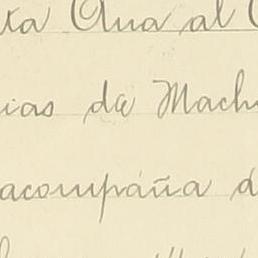 ta Ana al
ias de Mach
acompaña d